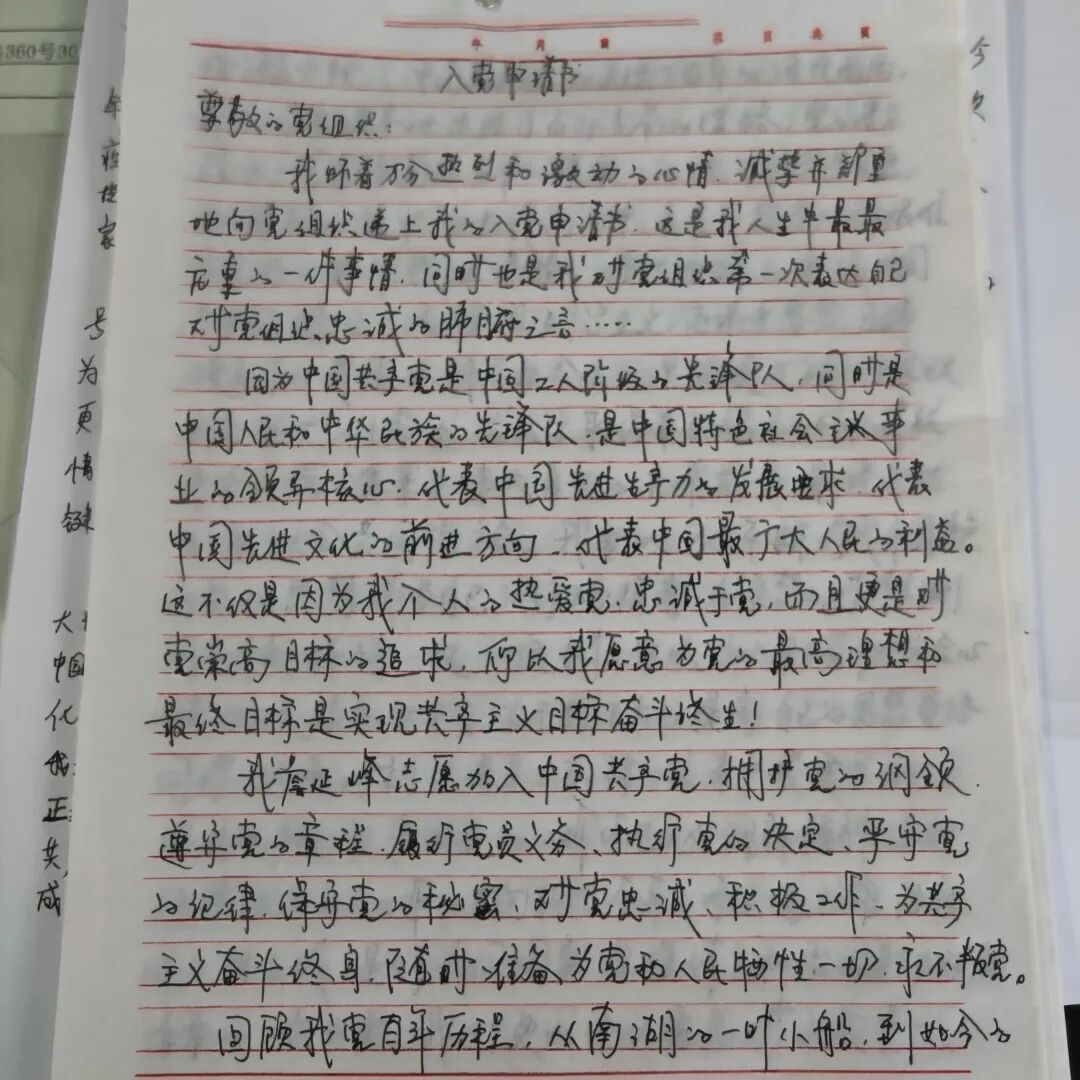 360号30
年 月 日 第 页 共 页
入党申请书
尊敬的党组织：
我怀着万分热烈和激动的心情，诚挚并郑重
地向党组织递上我的入党申请书，这是我人生中最最
庄重的一件事情，同时也是我对党组织第一次表达自己
对党组织忠诚的肺腑之言……
因为中国共产党是中国工人阶级的先锋队，同时是
中国人民和中华民族的先锋队，是中国特色社会主义事
业的领导核心，代表中国先进生产力的发展要求，代表
中国先进文化的前进方向，代表中国最广大人民的利益。
这不仅是因为我个人的热爱党，忠诚于党，而且更是对
党崇高目标的追求，所以我愿意为党的最高理想和
最终目标是实现共产主义目标奋斗终生！
我 延峰志愿加入中国共产党，拥护党的纲领，
遵守党的章程，履行党员义务、执行党的决定、严守党
的纪律，保守党的秘密、对党忠诚、积极工作，为共产
主义奋斗终身，随时准备为党和人民牺牲一切，永不叛党。
回顾我党百年历程，从南湖的一叶小船，到如今的
年
家
号
为
更
情
大
中国
化
我
正
共
成
今